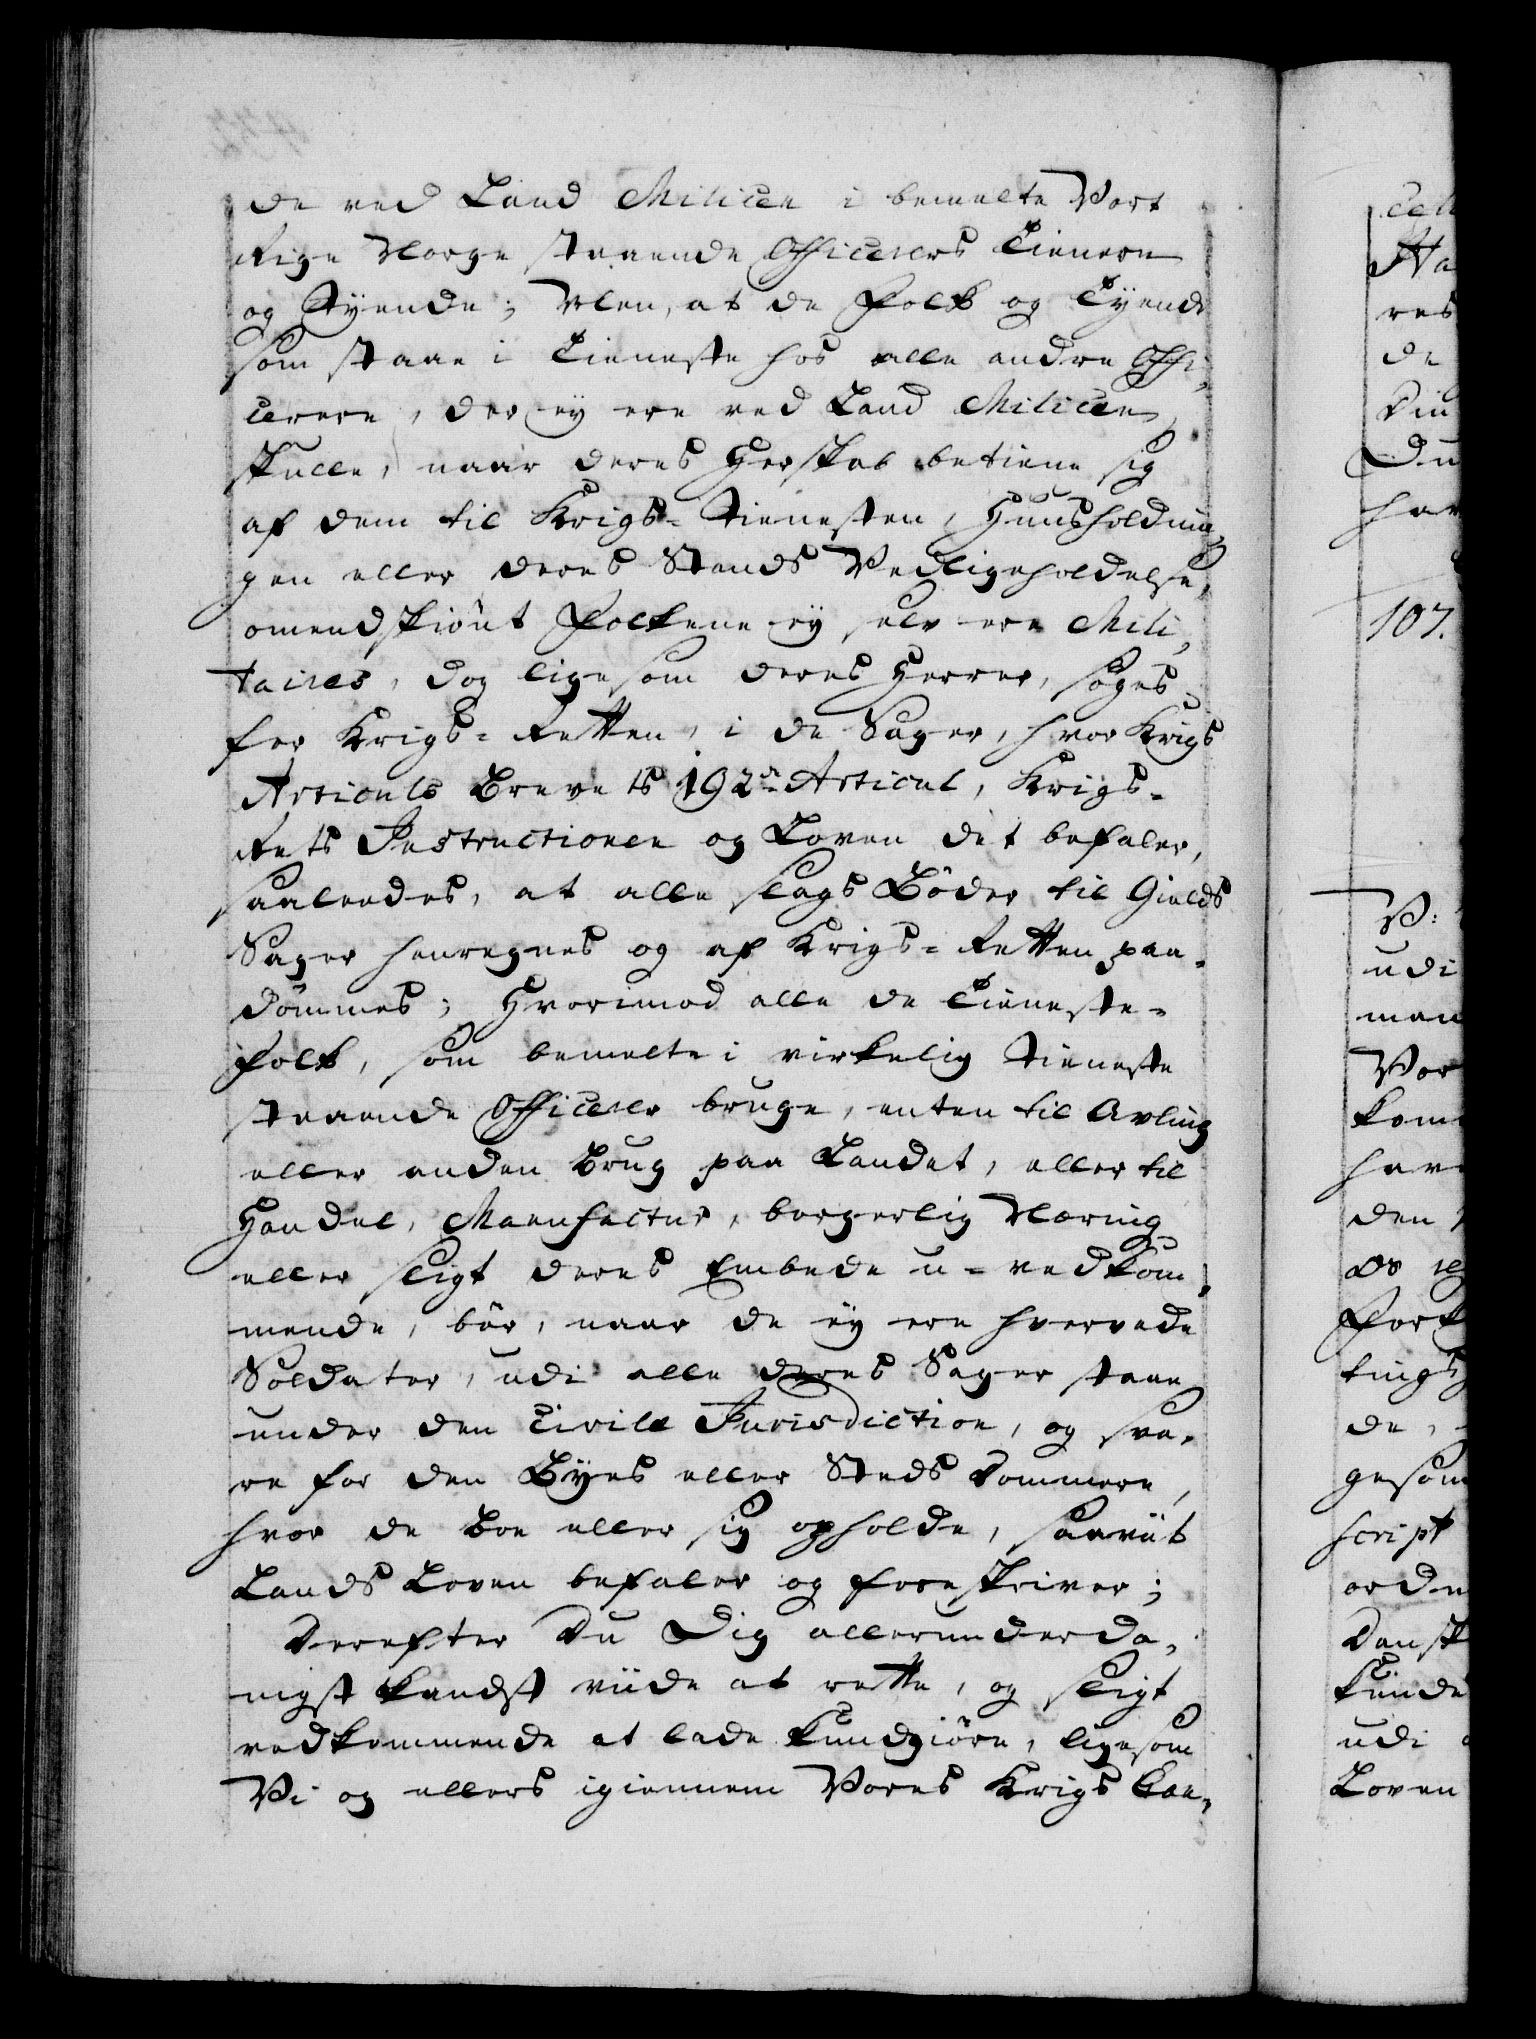 de ved Land Milicen i bemelte Vort
Rige Norge staaende Officerers Tienere
og Tyende; Men, at de Folk og Tyende
som staae i Tieneste hos alle andre Offi-
cerere, der ej ere ved Land Milicen,
skulle, naar deres Herskab betiene sig
af dem til Krigs-Tienesten, Huusholdnin-
gen eller deres Stands Vedligeholdelse,
omendskiönt Folkene ej selv ere Mili-
taires, dog ligesom deres Herrer, söges
for Krigs-Retten, i de Sager, hvor Krigs
Articuls Brevets 192de Articul, Krigs-
Rets Instructionen og Loven det befaler,
saaledes, at alle slags Böder til Gields
Sager henregnes og af Krigs-Retten paa-
dömmes; Hvorimod alle de Tieneste-
Folk, som bemelte i virkelig Tieneste
staaende Officerer bruge, enten til Avling
eller anden Brug paa Landet, eller til
Handel, Manufactur, borgerlig Næring
eller sligt deres Embede u-vedkom-
mende, bör, naar de ej ere hvervede
Soldater, udi alle deres Sager staae
under den Civile Jurisdiction, og sva-
re for den Byes eller Steds Dommere,
hvor de boe eller sig opholde, saaviit
Lands Loven befaler og foreskriver;
Derefter Du Dig allerunderda-
nigst kandst viide at rette, og sligt
vedkommende at lade kundgiöre, ligesom
Vi og ellers igiennem Vores Krigs Can-
cell
Ha
res
de
Din
Du
har
107.
V:
udi
man
Vor
kom
hav
den
os
For
ting
de,
gesom
script
orden
Dansk
kunde
udi
Loven